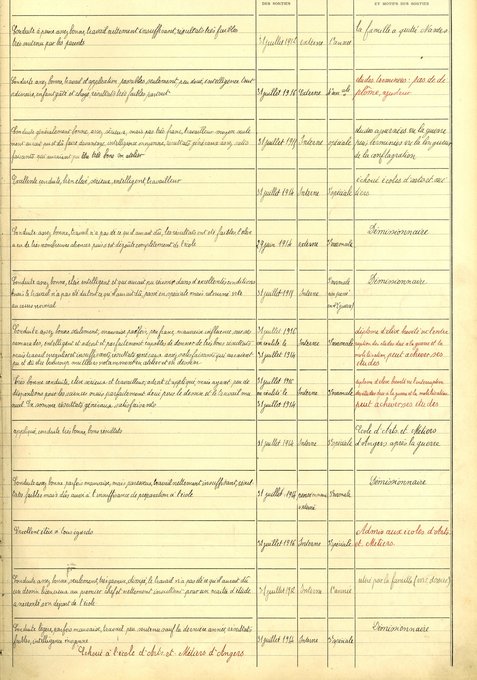 DES SORTIES
ET MOTIFS DES SORTIES
Conduite à peine assez bonne, travail nettement insuffisant, résultats très faibles
très soutenu par les parents
31 juillet 1915 externe 1e année
la famille a quitté Nantes
Conduite assez bonne, travail et application passables, seulement, peu doué, intelligence tout
ordinaire, enfant gâté et choyé, résultats très faibles partout
31 juillet 1916 Externe
études terminées: pas de di
plôme,
Conduite généralement bonne, assez sérieux, mais pas très franc, travailleur moyen seule
ment aurait pu et dû faire davantage, intelligence moyenne, résultats généraux assez satis
faisants qui auraient pu être très bons en atelier
31 juillet 1917 Interne spéciale
études
de la conflagration
Excellente conduite, bien élevé, sérieux, intelligent, travailleur
31 juillet 1914 Interne Spéciale
échoué écoles d'arts et mé
tiers
Conduite assez bonne, travail n'a pas été ce qu'il aurait dû, les résultats ont été faibles l'élève
a eu de très nombreuses absences puis s'est dégoûté complètement de l'école
29 juin 1914 externe Normale
Démissionnaire
Conduite assez bonne, élève intelligent et qui aurait pu arriver dans d'excellentes conditions
mais le travail n'a pas été du tout ce qu'il aurait dû, passé en spéciale mais retourné vite
au cours normal
31 juillet 1917 Interne Normale
Démissionnaire
Conduite assez bonne seulement, mauvaise parfois, peu franc, mauvaise influence sur ses
camarades, intelligent et adroit et parfaitement capable de donner de très bons résultats
mais travail irrégulier et insuffisant, résultats généraux assez satisfaisants qui auraient
pu et dû être beaucoup meilleurs notamment en atelier et en dessin
31 juillet 1916
en réalité le
31 juillet 1914
Interne Normale
diplôme d'élève breveté
mobilisation peut achever ses
études
Très bonne conduite, élève sérieux et travailleur, adroit et appliqué, mais ayant peu de
dispositions pour les sciences mais parfaitement doué pour le dessin et le travail ma
nuel. En somme résultats généraux satisfaisants
31 juillet 1916
en réalité le
31 juillet 1914
Interne Normale
diplôme d'élève breveté vu l'interruption
des études due à la guerre et la mobilisation
peut achever ses études
appliqué, conduite très bonne, bons résultats
31 juillet 1914 Interne Spéciale
Ecole d'Arts et Métiers
d'Angers après la guerre
Conduite assez bonne parfois mauvaise, mais paresseux, travail nettement insuffisant, résul
tats faibles mais dûs aussi à l'insuffisance de préparation à l'école
31 juillet 1914 Normale
Démissionnaire
Excellent élève à tous égards
31 juillet 1916 Interne Spéciale
Admis aux écoles d'Arts
et Métiers.
Conduite assez bonne, seulement, très joueur, dissipé, le travail n'a pas été ce qu'il aurait dû
a nécessité son départ de l'école
31 juillet 1912 Interne 1e année
retiré par la famille (voir dossier)
Conduite légère, parfois mauvaise, travail peu soutenu sauf la dernière année, résultats
faibles, intelligence moyenne
Echoué à l'école d'Arts et Métiers d'Angers
31 juillet 1914 Interne Spéciale
Démissionnaire